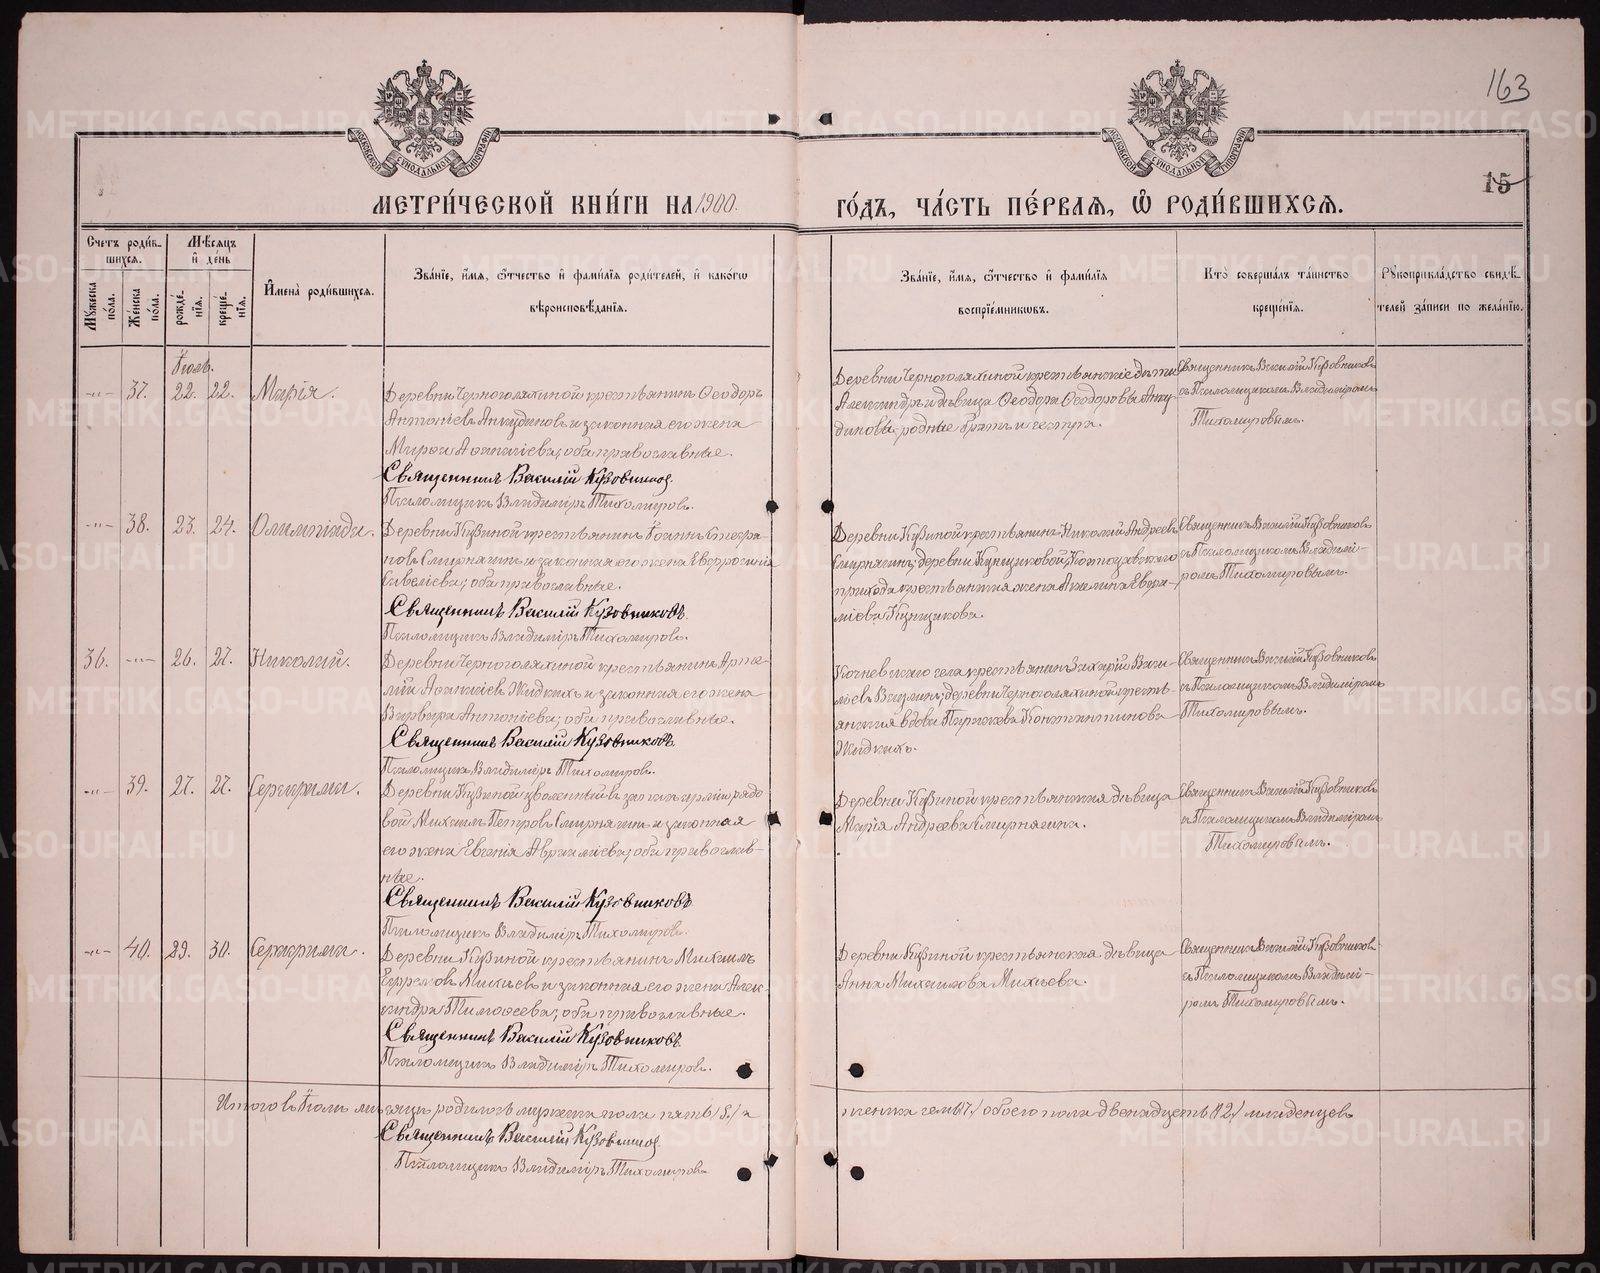 163
15
МЕТРИ́ЧЕСКОЙ КНИ́ГИ НА 1900.
ГО́ДЪ, ЧА́СТЬ ПЕ́РВАЯ, Ѡ РОДИ́ВШИХСЯ.
Счетъ роди́в-
шихся.
Мѣ́сяцъ
и де́нь
Мꙋжеска по́ла.
Же́нска по́ла.
рожде́-
нія.
креще́-
нія.
Имена̀ роди́вшихся.
Зва́нїе, и́мя, ѻ҆́тчество и҆ фами́лїя роди́телей, и҆ како́гѡ
вѣроисповѣ́данїя.
Зва́нїе, и́мя, ѻ҆́тчество и҆ фами́лїя
воспрїе́мникѡвъ.
Кто̀ соверша́лъ та́инство
креще́нїя.
Рꙋкоприкла́дство свидѣ́-
телей за́писи по жела́нїю.
Іюль.
-"- 37. 22. 22. Марія.
Деревни Черноголяхиной крестьянинъ Ѳеодоръ
Антоніевъ Анкудиновъ и законная его жена
Аѳанасіева, оба православные.
Священникъ Василій Кузовниковъ.
Псаломщикъ Владиміръ Тихомировъ.
Деревни Черноголяхиной крестьянскіе дѣти
Александръ и дѣвица Ѳеодора Ѳеодоровы Анку-
диновы, родные братъ и сестра.
Священникъ Василій Кузовниковъ
съ Псаломщикомъ Владиміромъ
Тихомировымъ.
-"- 38. 23. 24. Олимпіада.
Деревни Кузиной крестьянинъ Іоаннъ Стефа-
новъ Смирнягинъ и законная его жена Евфросинія
Савеліева; оба православные.
Священникъ Василій Кузовниковъ.
Псаломщикъ Владиміръ Тихомировъ.
Деревни Кузиной крестьянинъ Николай Андреевъ
Смирнягинъ; деревни Кунщиковой,
прихода крестьянская жена
Кунщикова.
Священникъ Василій Кузовниковъ
съ Псаломщикомъ Владимі-
ромъ Тихомировымъ.
36. -"- 26. 27. Николай.
Деревни Черноголяхиной крестьянинъ
Аѳанасіевъ Жидкихъ и законная его жена
Варвара Антоніева; оба православные.
Священникъ Василій Кузовниковъ.
Псаломщикъ Владиміръ Тихомировъ.
Кочневскаго села крестьянинъ Захарій Васи-
ліевъ; деревни Черноголяхиной кресть-
янская вдова Параскева Константинова
Жидкихъ.
Священникъ Василій Кузовниковъ
съ Псаломщикомъ Владиміромъ
Тихомировымъ.
-"- 39. 27. 27. Серафима.
Деревни Кузиной уволенный въ запасъ арміи рядо-
вой Михаилъ Петровъ Смирнягинъ и законная
его жена Евгенія Авраміева; оба православ-
ные.
Священникъ Василій Кузовниковъ
Псаломщикъ Владиміръ Тихомировъ.
Деревни Кузиной крестьянская дѣвица
Марія Андреева Смирнягина.
Священникъ Василій Кузовниковъ
съ Псаломщикомъ Владиміромъ
Тихомировымъ.
-"- 40. 29. 30. Серафима.
Деревни Кузиной крестьянинъ Михаилъ
Ефремовъ Михѣевъ и законная его жена Алек-
сандра Тимоѳеева; оба православные.
Священникъ Василій Кузовниковъ.
Псаломщикъ Владиміръ Тихомировъ.
Деревни Кузиной крестьянская дѣвица
Анна Михаилова Михѣева.
Священникъ Василій Кузовниковъ
съ Псаломщикомъ Владимі-
ромъ Тихомировымъ.
Итого въ Іюлѣ мѣсяцѣ родилось мужеска пола пять (5.) а
женска семь (7.) обоего пола двенадцать (12.) младенцевъ
Священникъ Василій Кузовниковъ
Псаломщикъ Владиміръ Тихомировъ
METRIKI.GASO-URAL.RU